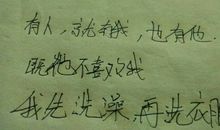 有人，就有我，也有他。
既他不喜欢我
我先洗澡，再洗衣